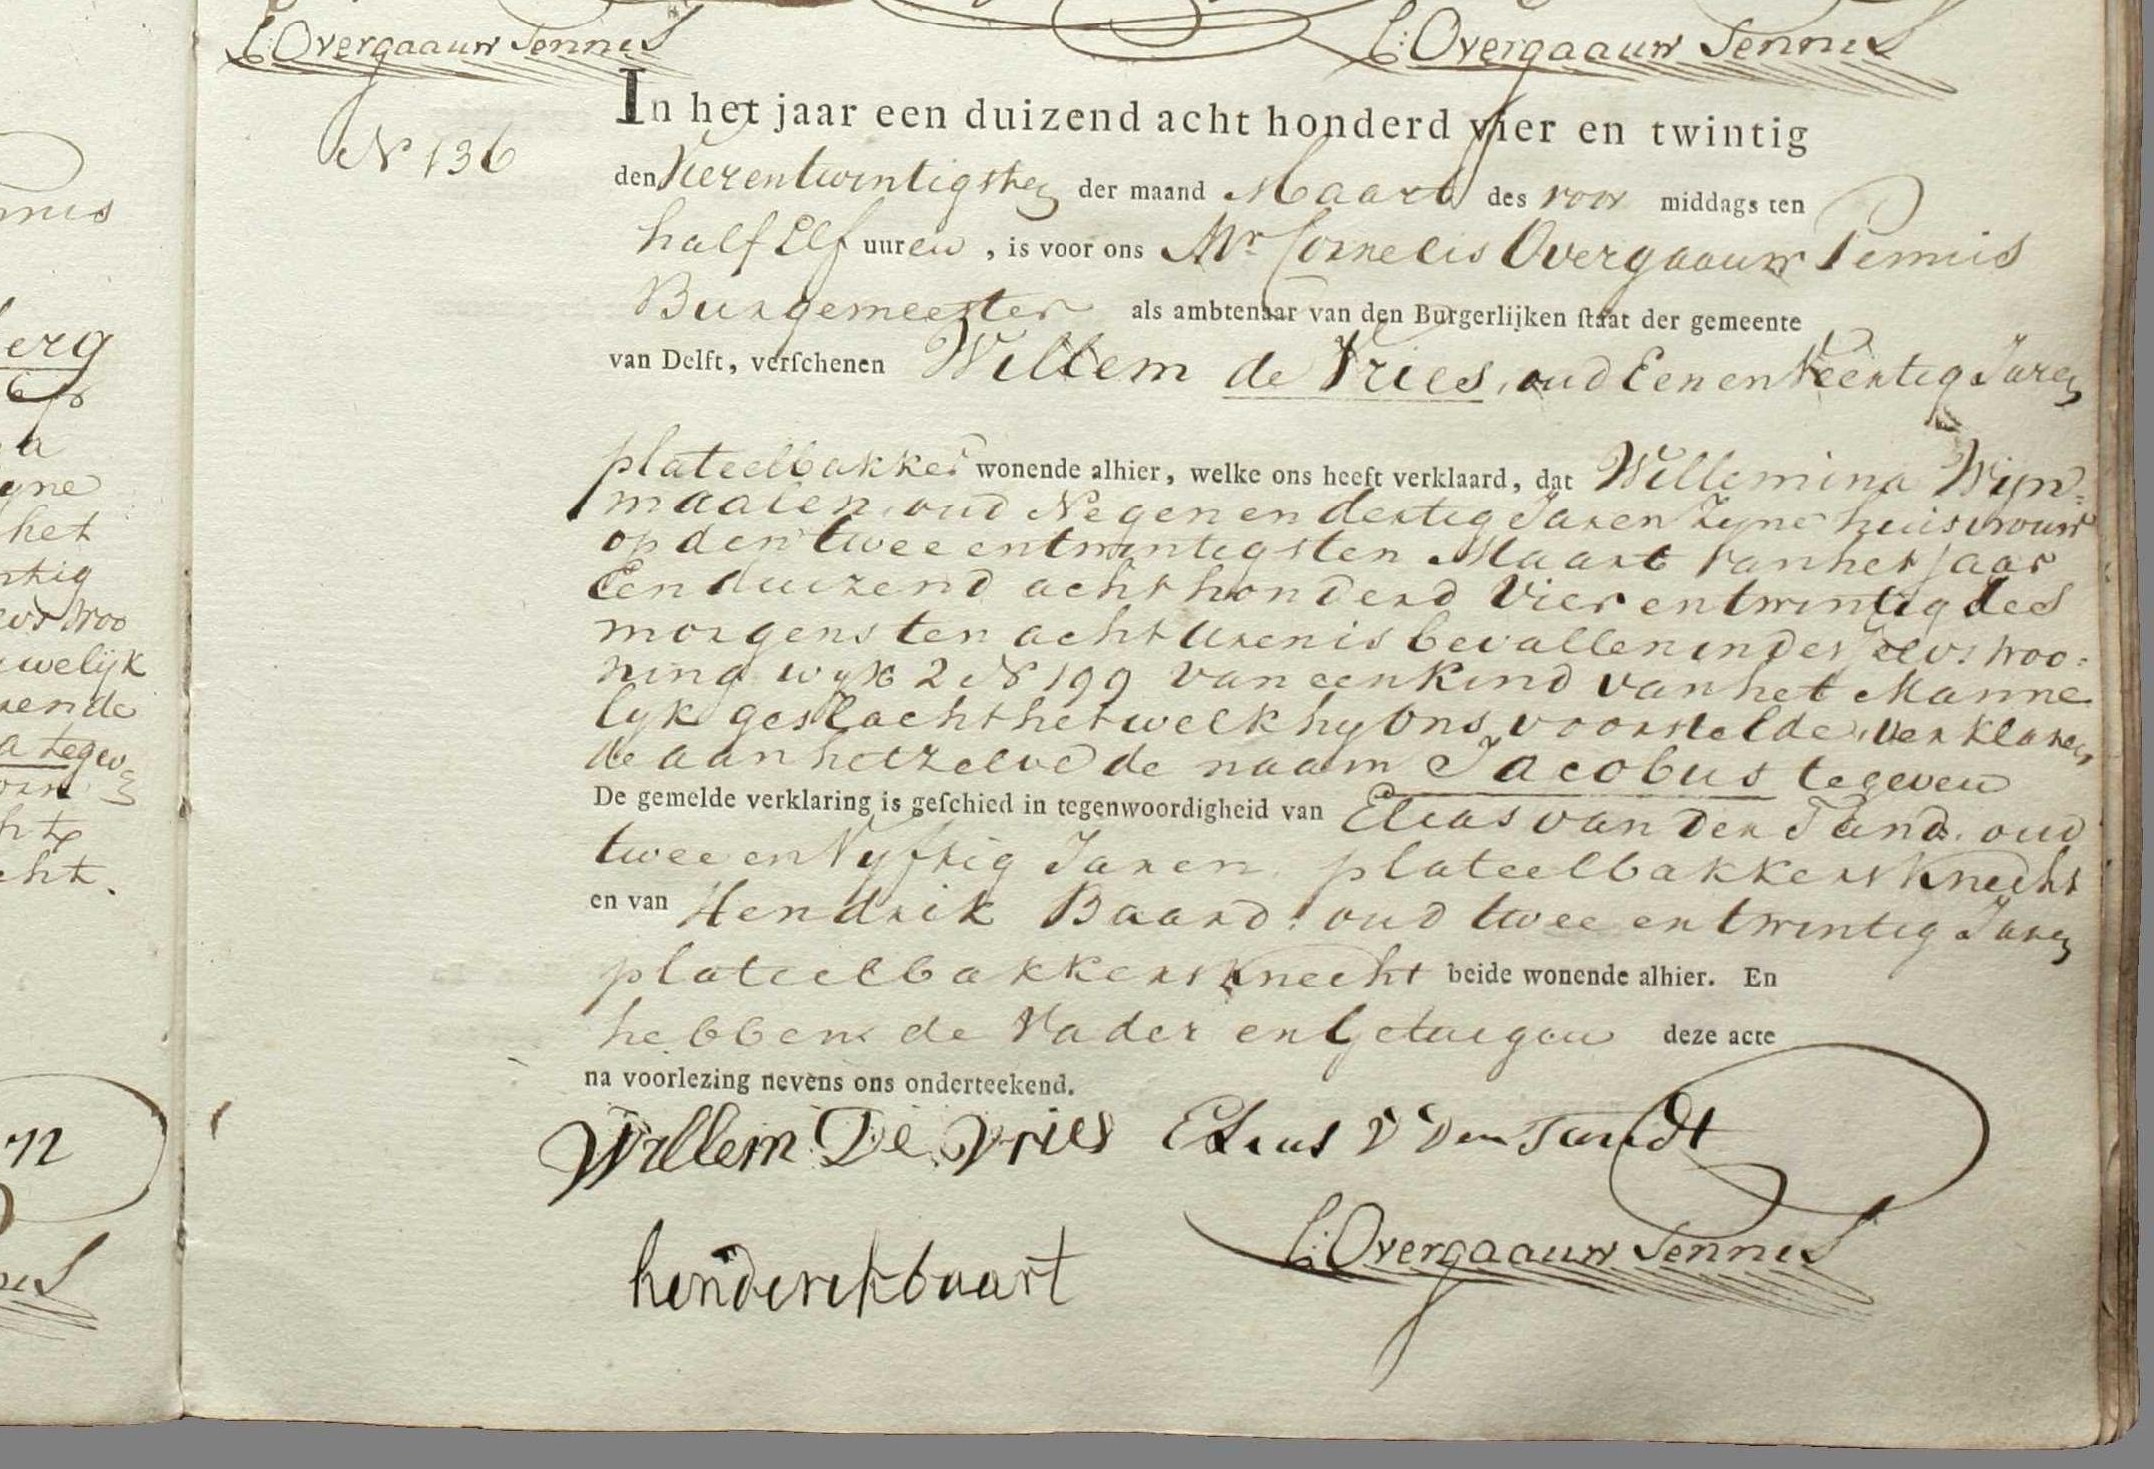 C: Overgaauw Pennis
C: Overgaauw Pennis
N 136
In het jaar een duizend acht honderd vier en twintig
den Vierentwintigsten der maand Maart des voor middags ten
half Elf uuren, is voor ons Mr. Cornelis Overgaauw Pennis
Burgemeester als ambtenaar van den Burgerlijken ſtaat der gemeente
van Delft, verſchenen Willem de Vries, oud Een en Veertig Jaren
plateelbakker wonende alhier, welke ons heeft verklaard, dat Willemina Wijn=
maalen, oud Negen en dertig Jaren Zyne huisvrouw
op den twee entwintigsten Maart van het jaar
Een duizend acht honderd Vier en twintig des
morgens ten acht Uren is bevallen in deszelvs woo=
ning wyk 2 N 199 van een kind van het Manne
lyk geslacht hetwelk hy Ons voorstelde, verklaren
de aan hetzelve de naam Jacobus te geven
De gemelde verklaring is geſchied in tegenwoordigheid van Elias van der Sand. oud
twee en Vyftig Jaren plateelbakkers knecht
en van Hendrik Baard. oud twee en twintig Jaren
plateelbakkers knecht beide wonende alhier. En
hebben de Vader en Getuigen deze acte
na voorlezing nevens ons onderteekend.
Willem De Vries Elias V Den Sandt
henderik baart C: Overgaauw Pennis
nnis
erg
a
yne
het
ntig
woo
uwelijk
rende
a tegev
cht.
n
nis